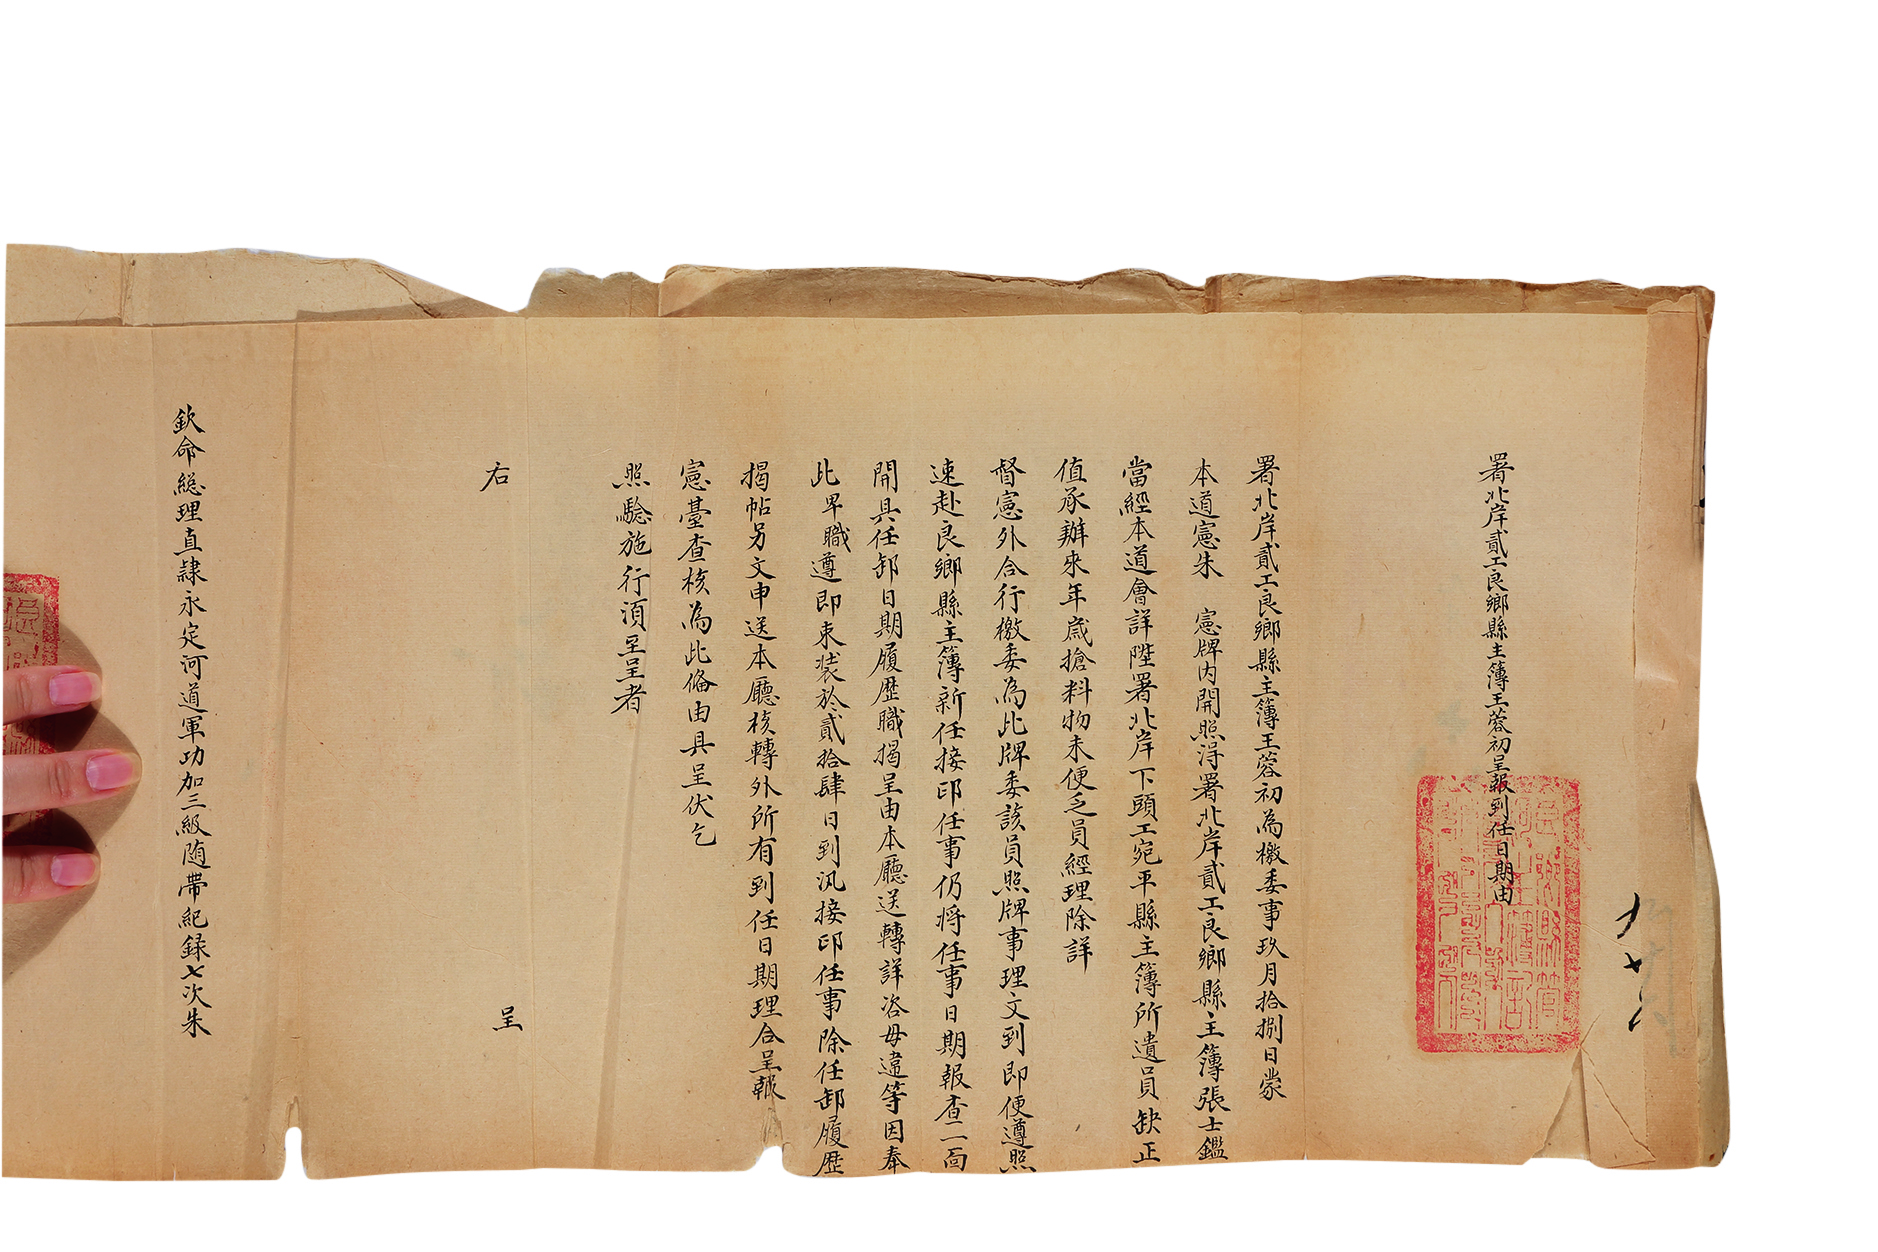 署北岸貳工良鄉縣主簿王蓉初呈報到任日期由
署北岸貳工良鄉縣主簿王蓉初為檄委事玖月拾捌日蒙
本道憲朱 憲牌內開照淂署北岸貳工良鄉縣主簿張士鑑
當經本道會詳陞署北岸下頭工宛平縣主簿所遺員缺正
值承辦來年歲搶料物未便乏員經理除詳
督憲外合行檄委為此牌委該員照牌事理文到即便遵照
速赴良鄉縣主簿新任接印任事仍將任事日期報查一面
開具任卸日期履歷職揭呈由本廳送轉詳咨毋違等因奉
此卑職遵即束裝於貳拾肆日到汛接印任事除任卸履歷
揭帖另文申送本廳核轉外所有到任日期理合呈報
憲臺查核為此俻由具呈伏乞
照驗施行湏至呈者
右 呈
欽命總理直隸永定河道軍功加三級随帶紀録七次朱